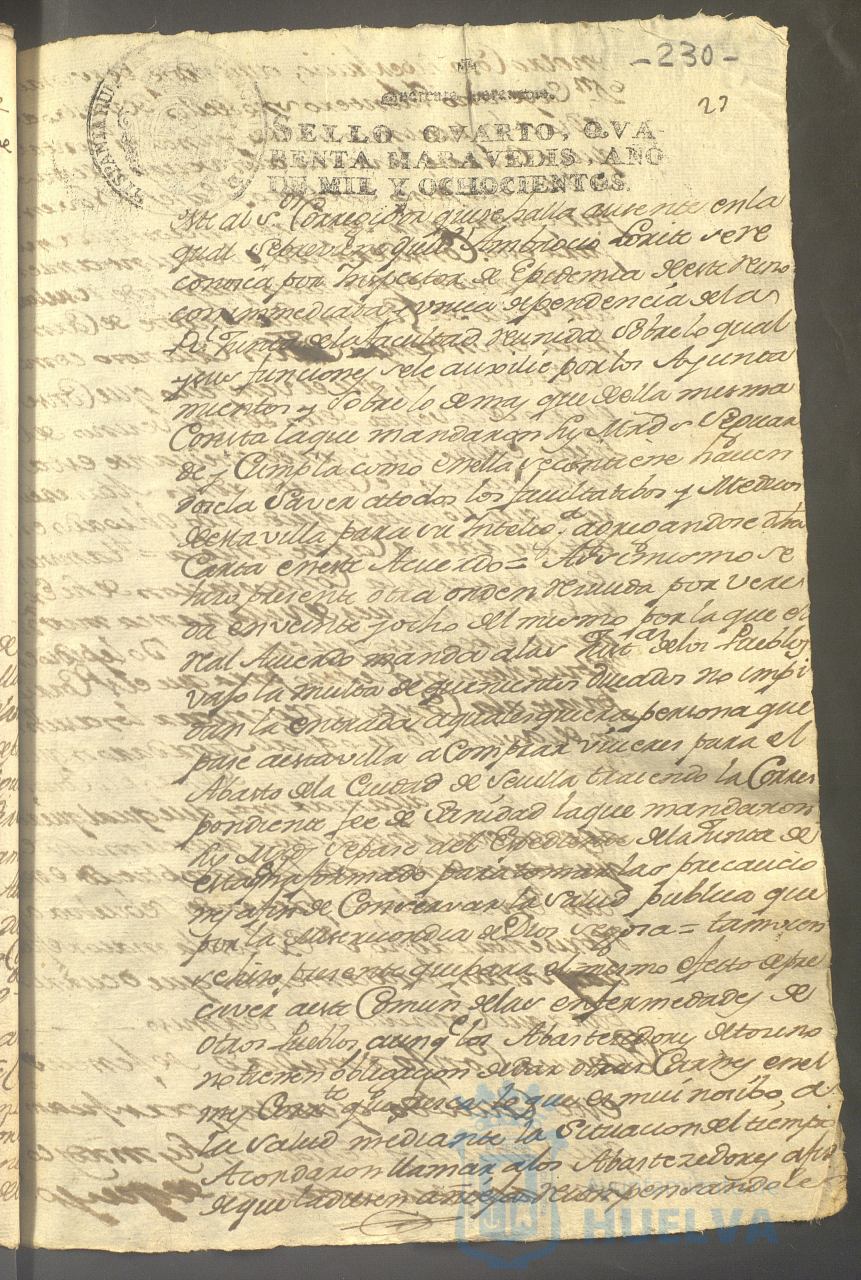 -230-
27
Quarenta maravedis.
SELLO QVARTO, QVA-
RENTA MARAVEDIS, AÑO
DE MIL Y OCHOCIENTOS.
HISPANIARUM
al Sor Corregidor que se halla ausente en la
qual se previene que Dn Ambrocio Lorite se re
conosca por Inspector de Epidemia de este Reino
con immediata y unica dependencia de la
Rl Junta de la facultad reunida sobre lo qual
y sus funciones se le auxilie por los Ayunta
mientos y sobre lo demas que de ella misma
Consta la que mandaron Sus Mrds Se guar
de y Cumpla como en ella se contiene hacien
dosela Saver a todos los facultatibos y Medicos
de esta villa para su Inteliga agregandose dha
Carta en este Acuerdo = Assimismo se
hizo presente otra orden venida por vere
da en veinte y ocho del mismo por la que el
Real Acuerdo manda a las Justas de los Pueblos
vajo la multa de quinientos ducados no impi
dan la entrada a qualesquiera persona que
pase a esta villa a Comprar viveres para el
Abasto de la Ciudad de Sevilla trayendo la Corres
pondiente fee de Sanidad la que mandaron
Sus Mrds se pase al Expediente de la Junta de
esta formado para tomar las precaucio
nes a fin de Conservar la salud publica que
por la Misericordia de Dios se gosa = tamvien
se hizo presente que para el mismo efecto de pre
caver a este Comun de las enfermedades de
otros Pueblos aunqe los Abastezedores de toreno
no tienen obligacion de dar otras Carnes en el
mes Corrte que es mui nosibo, a
la salud mediante la situacion del tiempo
Acordaron llamar a los Abastezedores a fin
de que la diesen
Ayuntamiento de
HUELVA